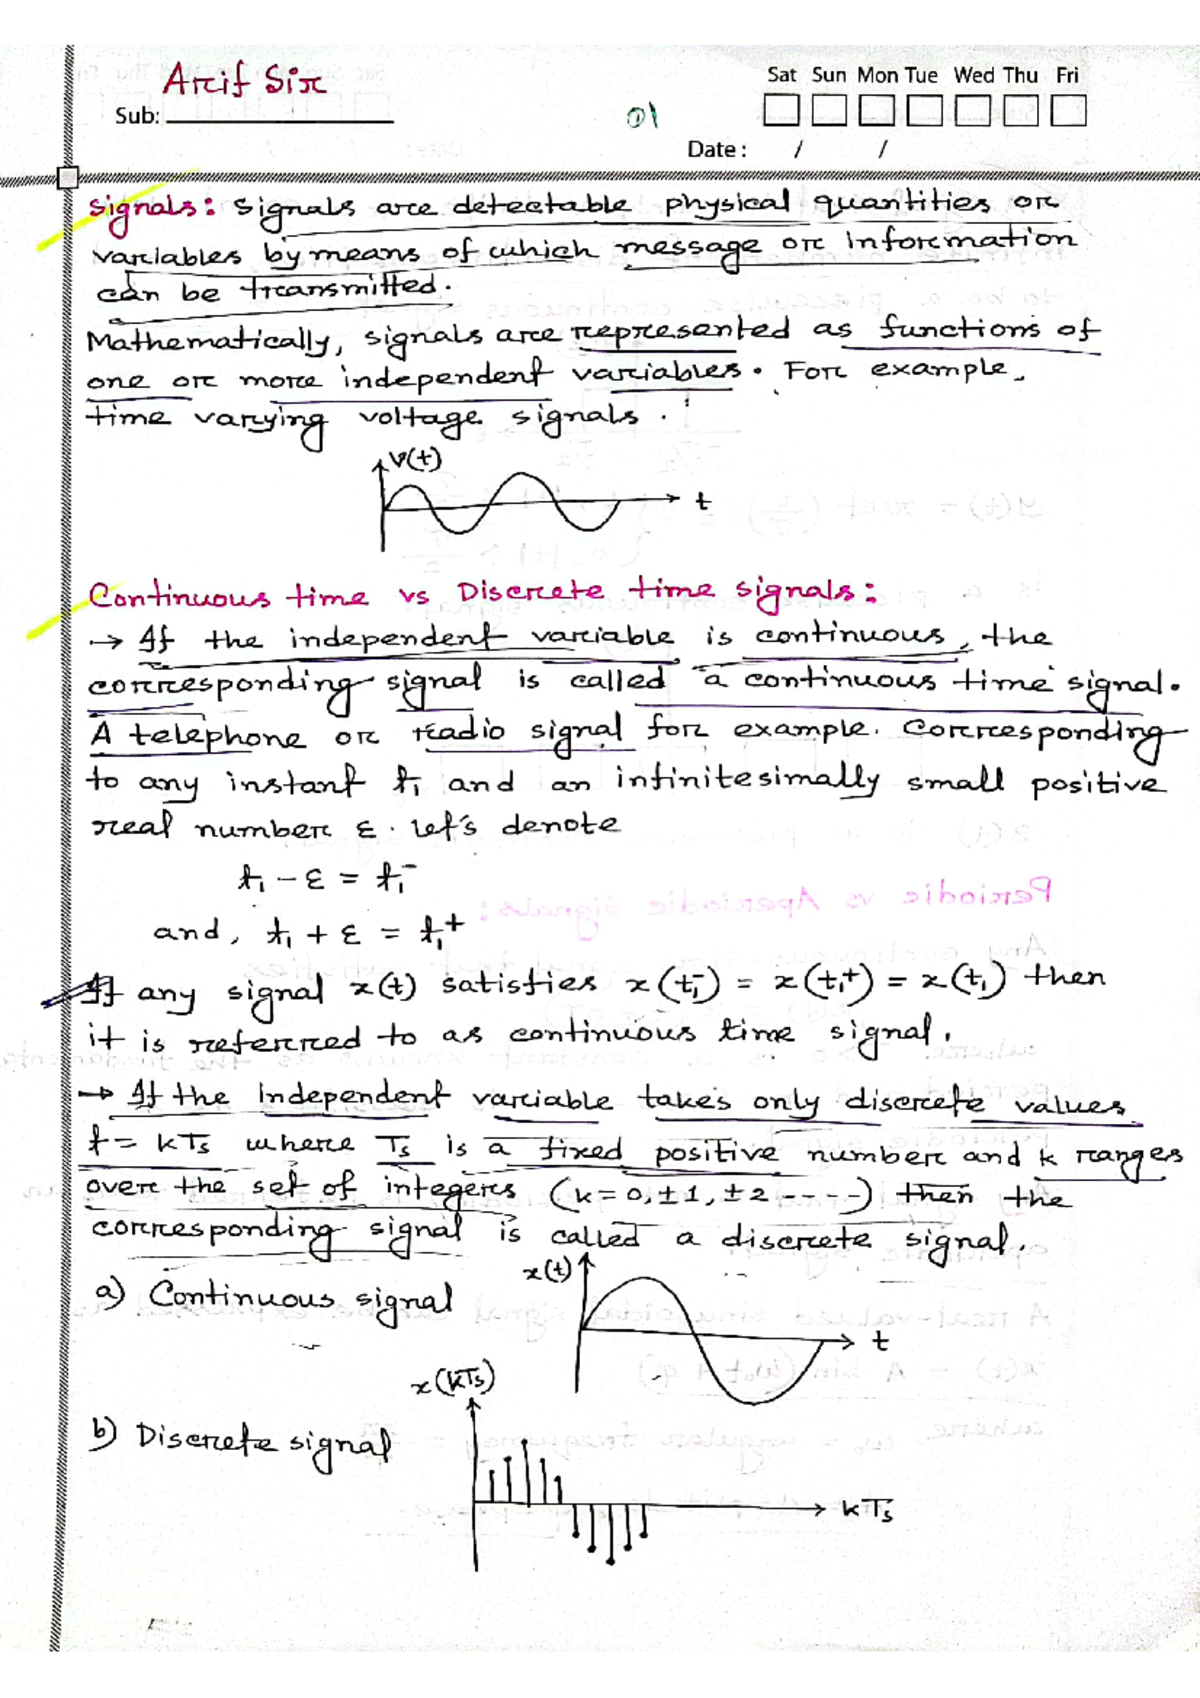 Arif Sir
Sat Sun Mon Tue Wed Thu Fri
Sub:
01
Date : / /
Signals: Signals are detectable physical quantities or
variables by means of which message or information
can be transmitted.
Mathematically, signals are represented as functions of
one or more independent variables. For example,
time varying voltage signals.
V(t)
t
Continuous time vs Discrete time signals:
→ If the independent variable is continuous, the
corresponding signal is called a continuous time signal.
A telephone or radio signal for example. Corresponding
to any instant t₁ and an infinitesimally small positive
real number ε. Let's denote
t₁ - ε = t₁⁻
and, t₁ + ε = t₁⁺
If any signal x(t) satisfies x(t₁⁻) = x(t₁⁺) = x(t₁) then
it is referred to as continuous time signal.
→ If the independent variable takes only discrete values
t = kTs where Ts is a fixed positive number and k ranges
over the set of integers (k = 0, ±1, ±2 ----) then the
corresponding signal is called a discrete signal.
a) Continuous signal
x(t)
t
x(kTs)
b) Discrete signal
kTs